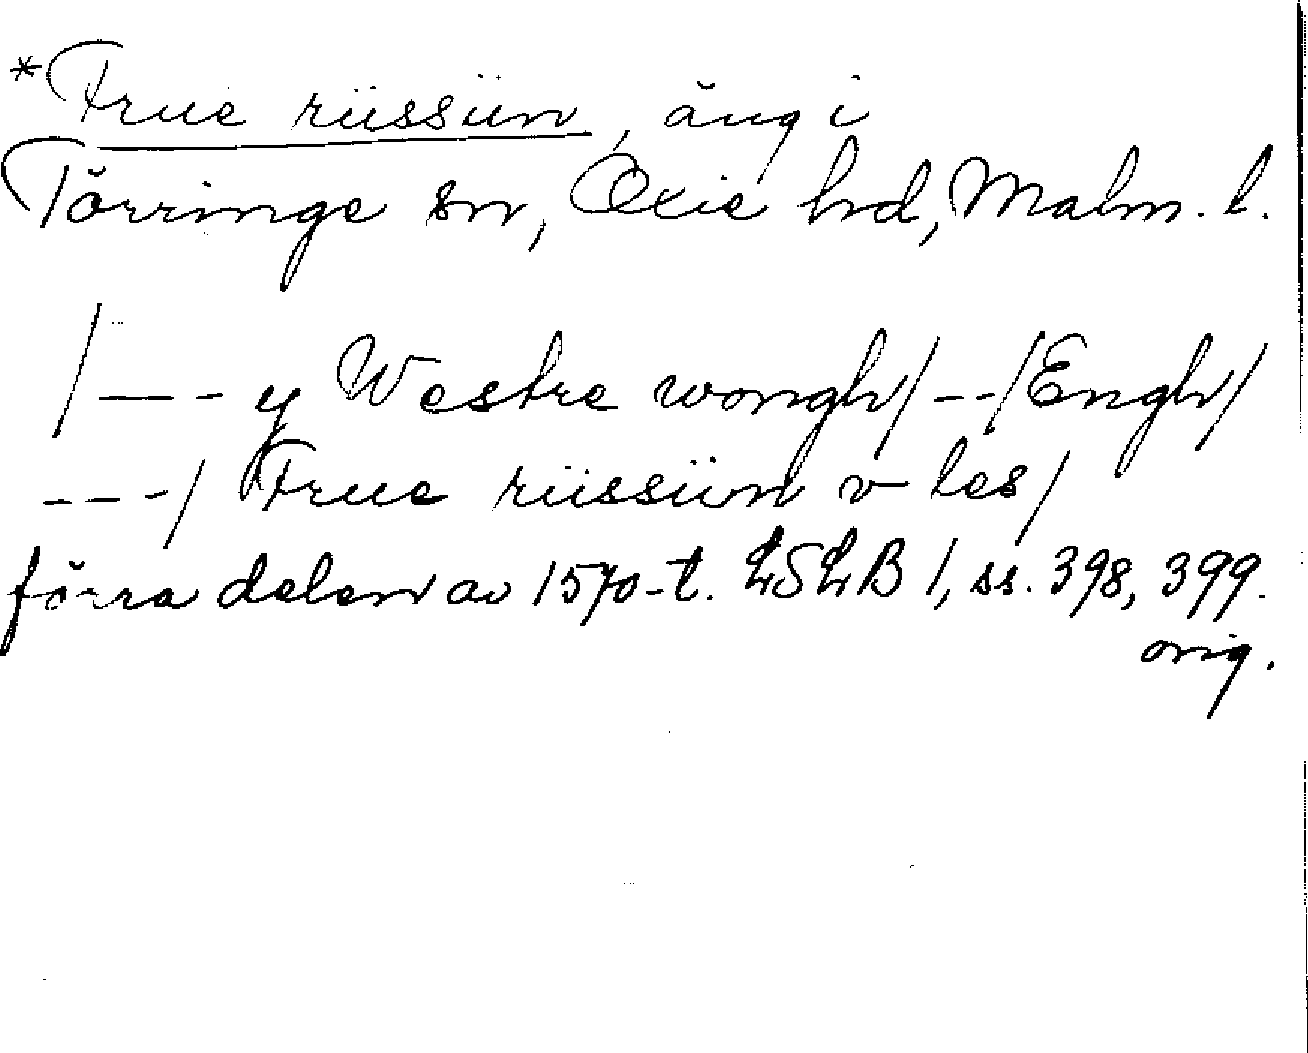 *Frue rüssün, äng i
Törringe sn, Oxie hd, Malm. l.
/--- y Westre wongh/--/Engh/
---/ Frue rüssün v les/
förra delen av 1570-t. LSLB 1, ss. 398, 399.
orig.